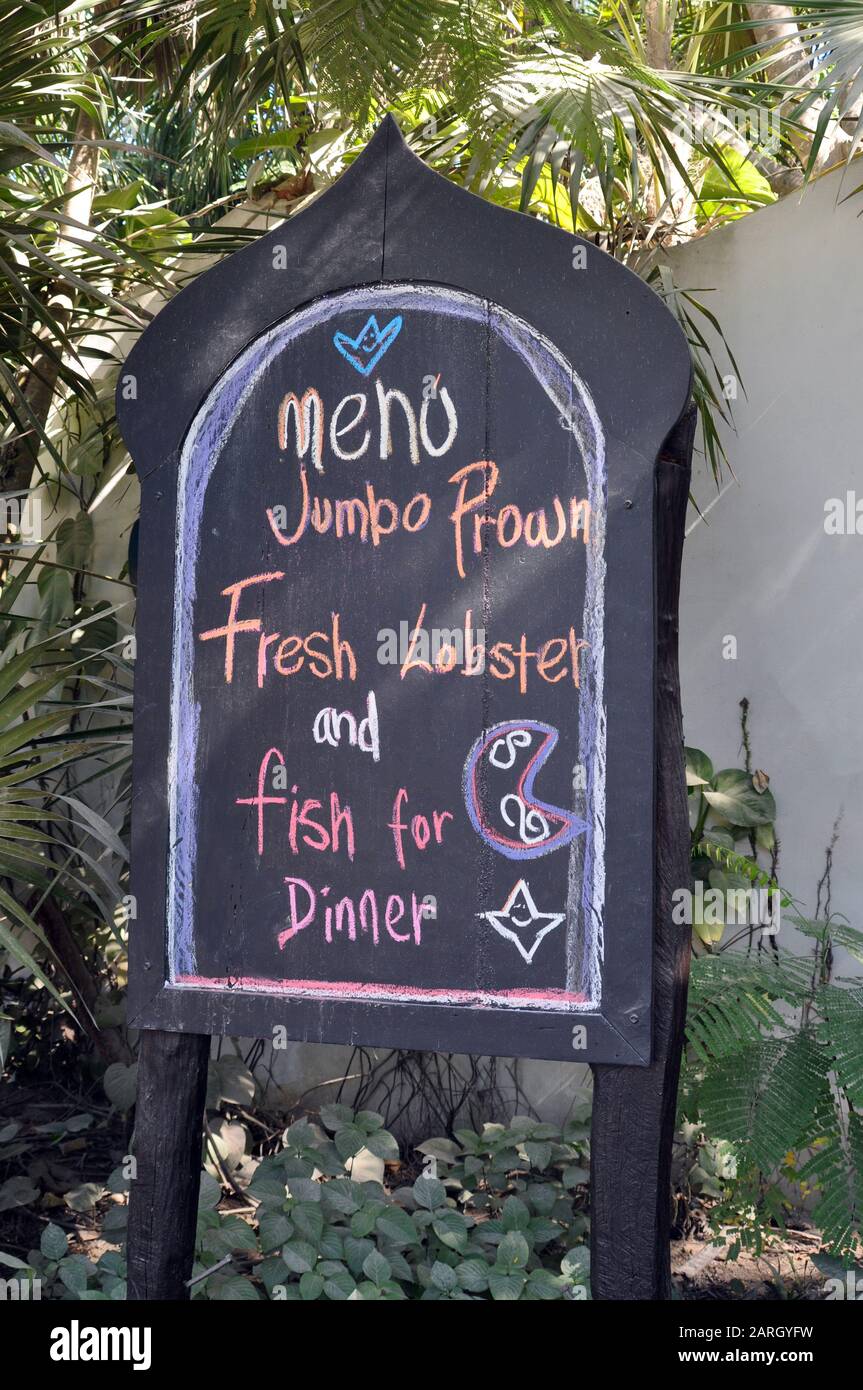 menu
Jumbo Prown
Fresh Lobster
and
fish for
Dinner
alamy
Image ID: 2ARGYFW
www.alamy.com